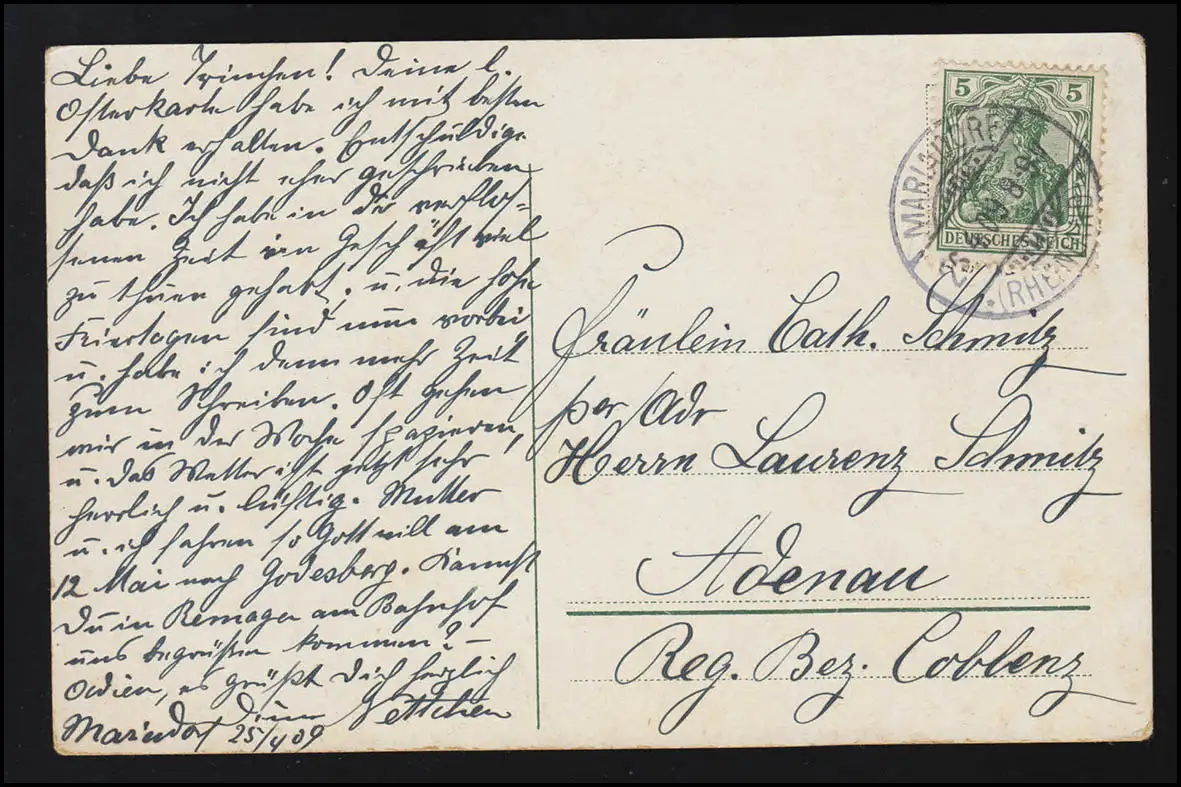 Liebe Trinchen! Deine l.
Osterkarte habe ich mit besten
Dank erhalten. Entschuldige
daß ich nicht eher geschrieben
habe. Ich habe in der verflos-
senen Zeit im Geschäft viel
zu thuen gehabt. u. die hohe
Feiertagen sind nun vorbei
u. habe ich denn mehr Zeit
zum Schreiben. Oft gehen
wir in der Woche spazieren,
u. das Wetter ist jetzt sehr
herrlich u. lüftig. Mutter
u. ich fahren so Gott will am
12 Mai nach Godesberg. Kannst
Du in Remagen am Bahnhof
uns begrüßen kommen? –
Adien, es grüßt Dich herzlich
Deine Jettchen
Mariadorf 25/4 09
5 5
DEUTSCHES REICH
MARIADORF
09 8-9
(RHEINL
Fräulein Cath. Schmitz
per Adr
Herrn Laurenz Schmitz
Adenau
Reg. Bez. Coblenz